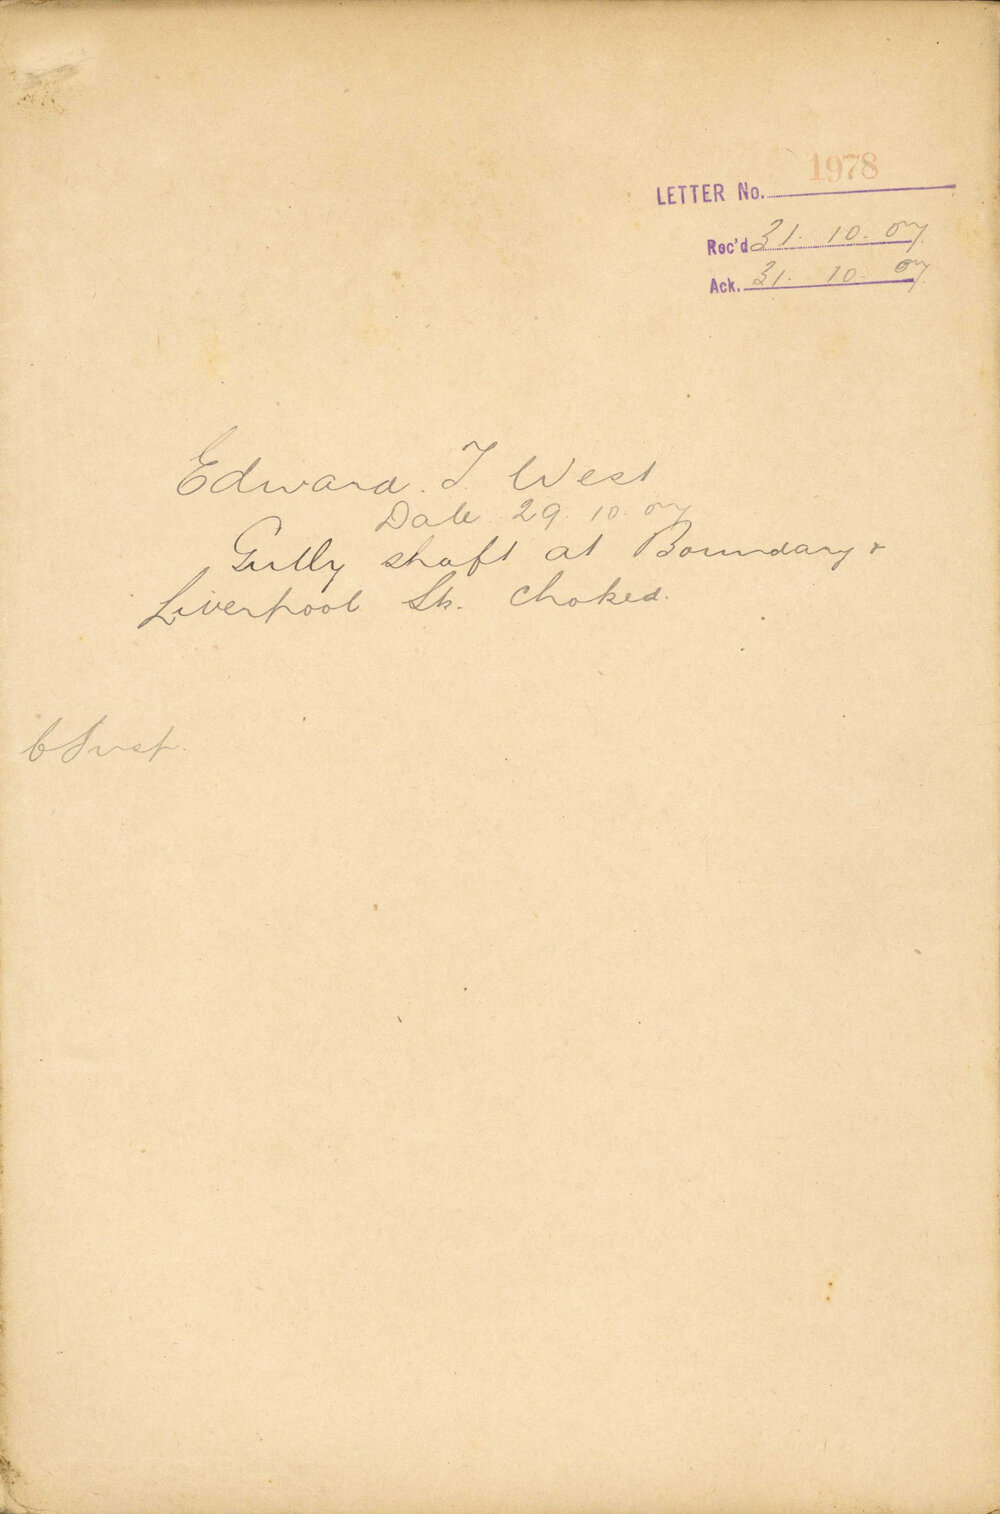 LETTER No. 1978
Rec'd 31. 10. 07
Ack. 31. 10. 07
Edward. T. West
Date 29. 10. 07
Gully shaft at Boundary &
Liverpool Sts. Choked.
C Insp.